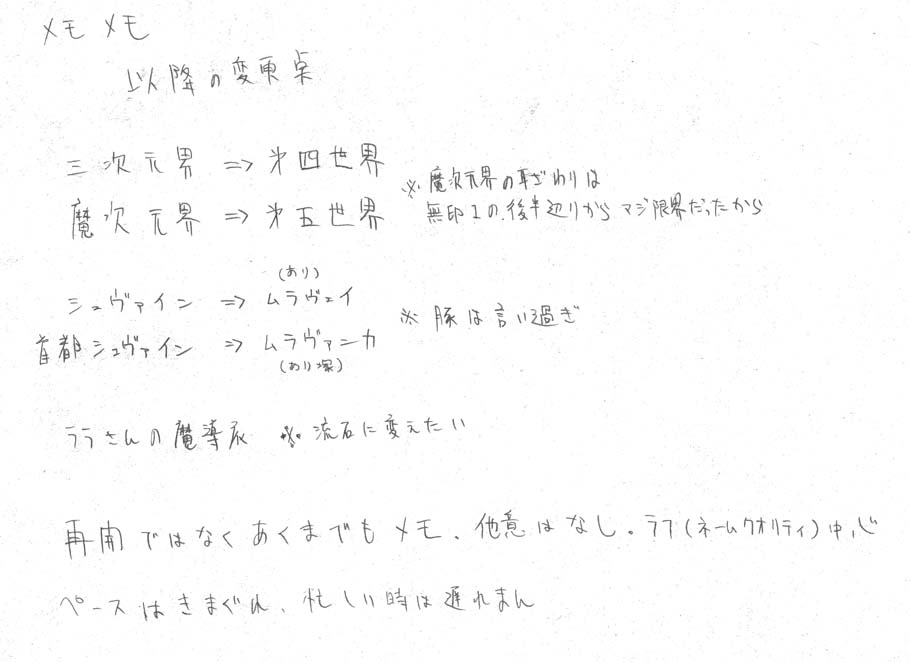 メモメモ
以降の変更点
三次元界 => 第四世界
魔次元界 => 第五世界
※ 魔次元界の耳ざわりは
無印1の後半辺りからマジ限界だったから
(あり)
シュヴァイン => ムラヴェイ
首都シュヴァイン => ムラヴァーカ
(あり塚)
※ 豚は言い過ぎ
ララさんの魔導衣 ※ 流石に変えたい
再開ではなくあくまでもメモ、他意はなし。ラフ(ネームクオリティ)中心
ペースはきまぐれ、忙しい時は遅れまん